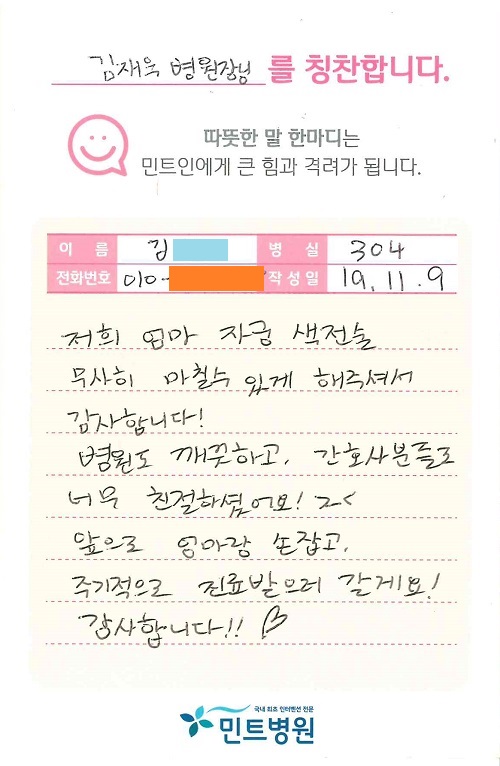 김재욱 병원장님 를 칭찬합니다.
따뜻한 말 한마디는
민트인에게 큰 힘과 격려가 됩니다.
이 름 김 병 실 304
전화번호 010- 작성일 19.11.9
저희 엄마 자궁 색전술
무사히 마칠수 있게 해주셔서
감사합니다!
병원도 깨끗하고, 간호사분들도
너무 친절하셨어요! ㅋㅋ
앞으로 엄마랑 손잡고,
주기적으로 진료받으러 갈게요!
감사합니다!!
국내 최초 인터벤션 전문
민트병원